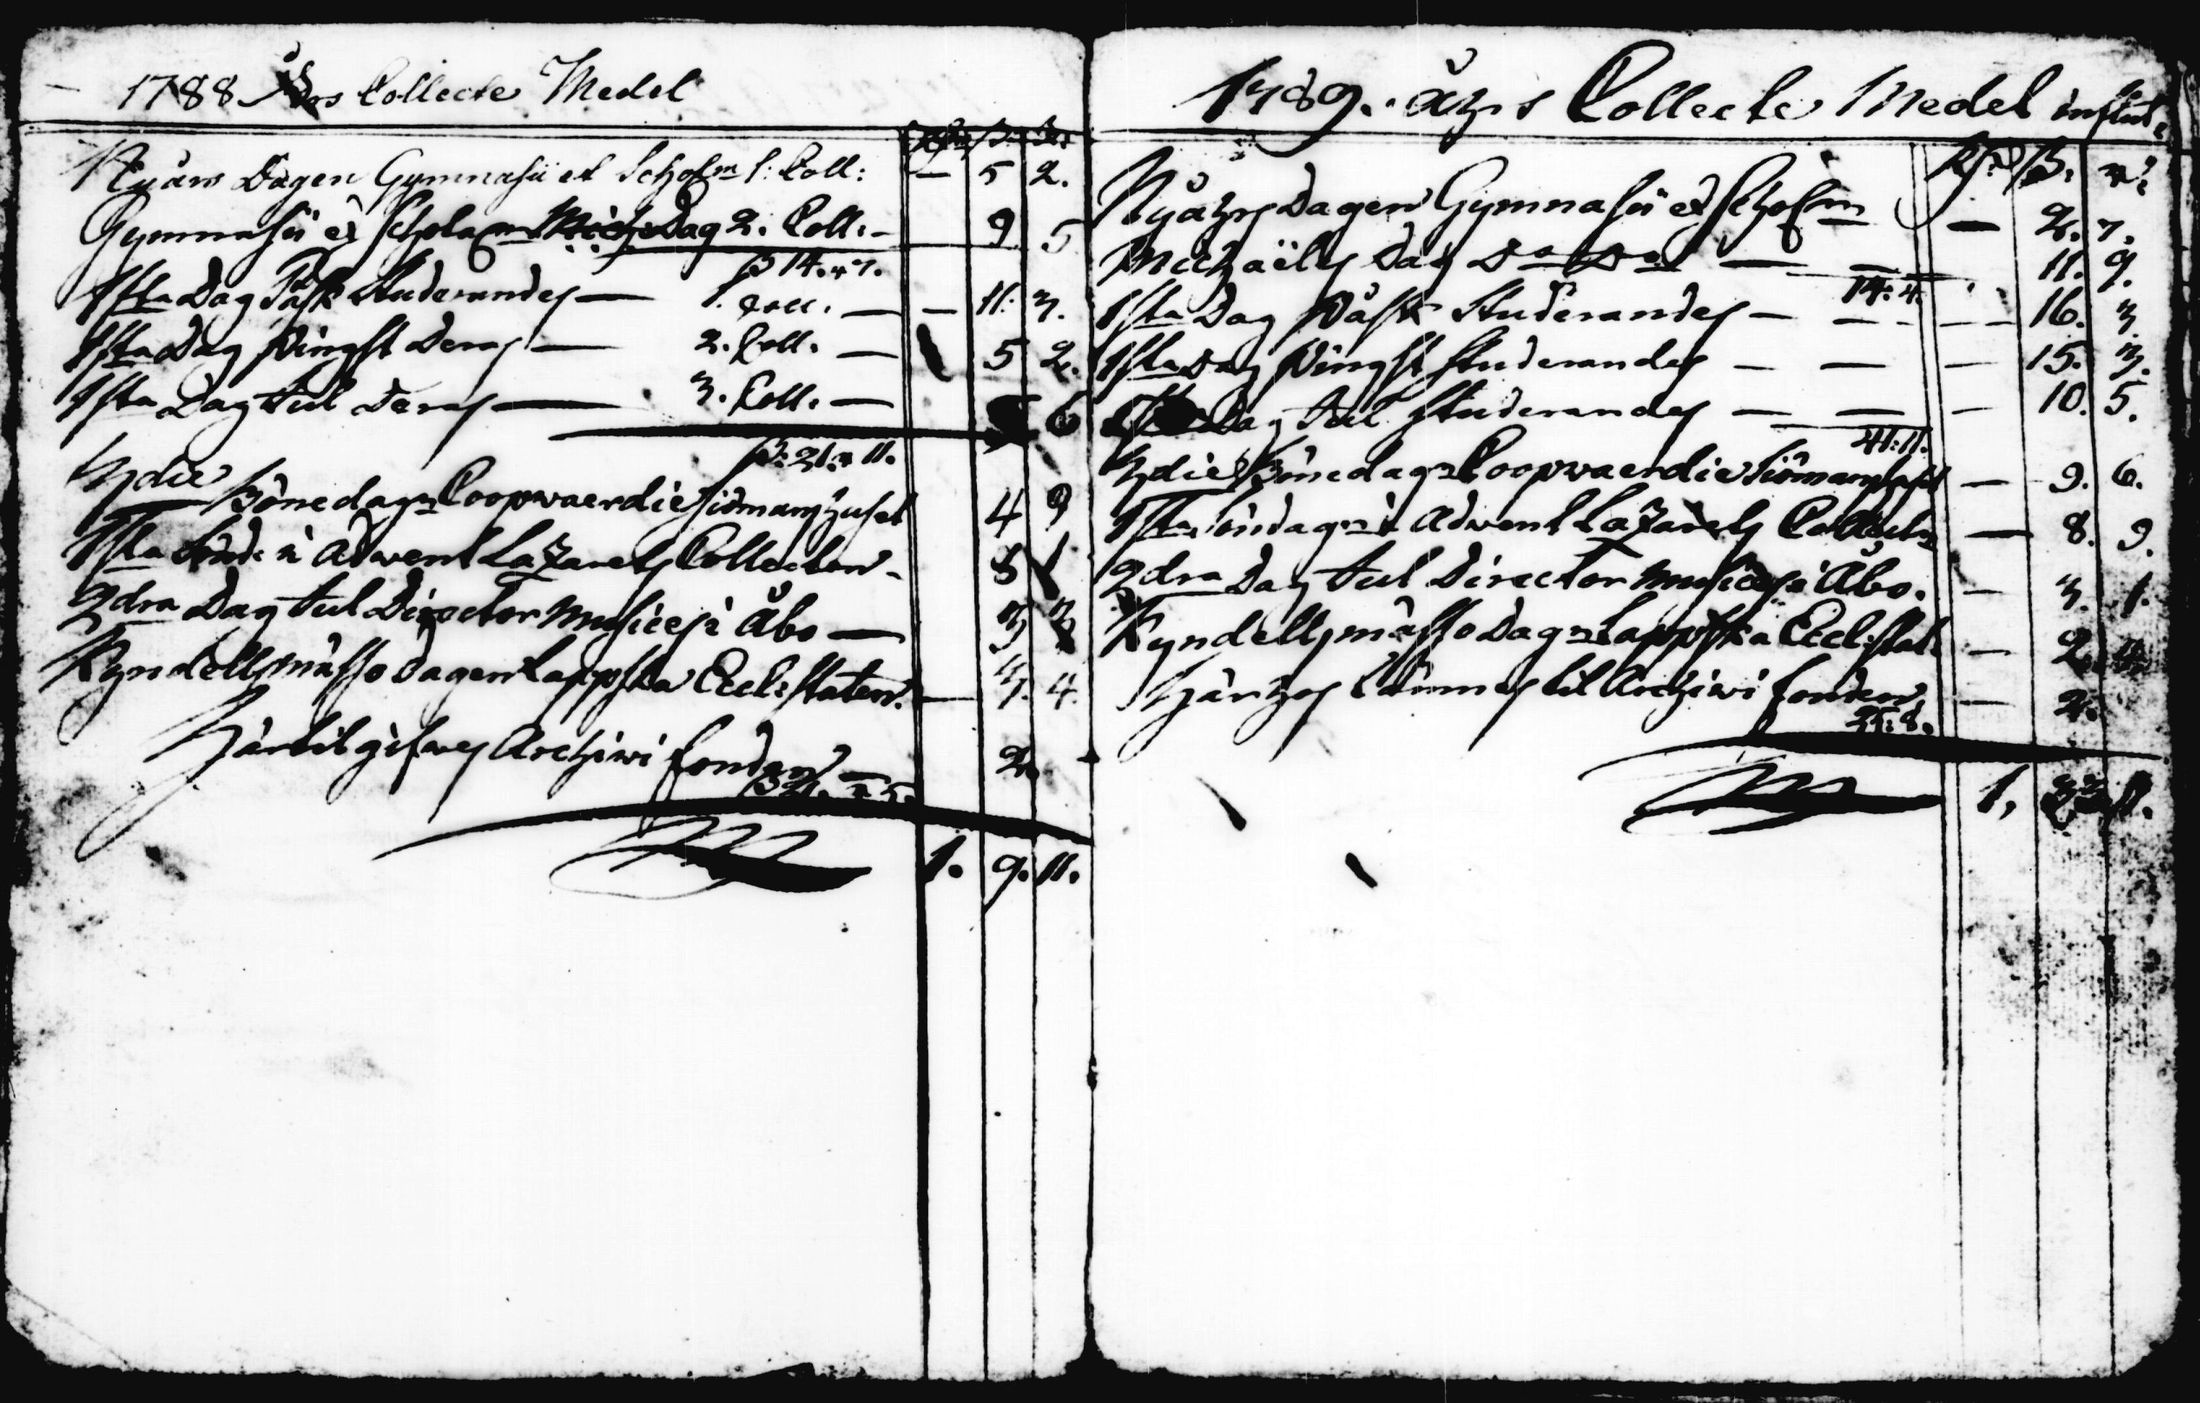 1788 Års Collecte Medel
Nyårs Dagen Gymnasii et Schol㎝ 1: Coll: — 5 2.
Gymnasii et Scholarum Mich: Dag 2. Coll:- 9 5
ß 14. 7.
1sta Dag Påsk Studerandes — 1. Coll. — — 11. 3.
1sta Dag Pingst Deras — 2. Coll. — 5 2.
1sta Dag Jul Deras — 3. Coll. — 5 6
ß. 21. 11.
3die Bönedagen Coopvaerdie Siömans Huset 4 9
1sta Sönd: i Advent Lazarets Collecten - 8 1
2dra Dag Jul Director Musices i Åbo — 3 3
Kyndellsmässo Dagen Lappska Eccl: Staten. — 3. 4.
Härtil gifwes Archivi fonden — 2.
21. 5.
1. 9. 11.
1789. Åhrs Collecte Medel influt:
Rd ß. r:
Nyåhrs Dagen Gymnasii et Schol㎝ — 2. 7.
Michaëlis Dag Do Do — — 11. 9.
14. 4.
1sta Dag Påsk Studerandes — — — 16. 3.
1sta Dag Pingst Studerandes — — — 15. 3.
1sta Dag Jul Studerandes — — — 10. 5.
41: 11.
3die Bönedagen Coopvaerdie Siömanshuset — 9. 6.
1sta Söndagen i Advent Lazarets Collecten — 8. 9.
2dra Dag Jul Director Musices i Åbo. — 3. 1.
Kyndellsmässo Dagen Lappska Eccl: Stat: — 2.
Härtil lämnas til Archivi fonden — 2.
25. 8.
1,